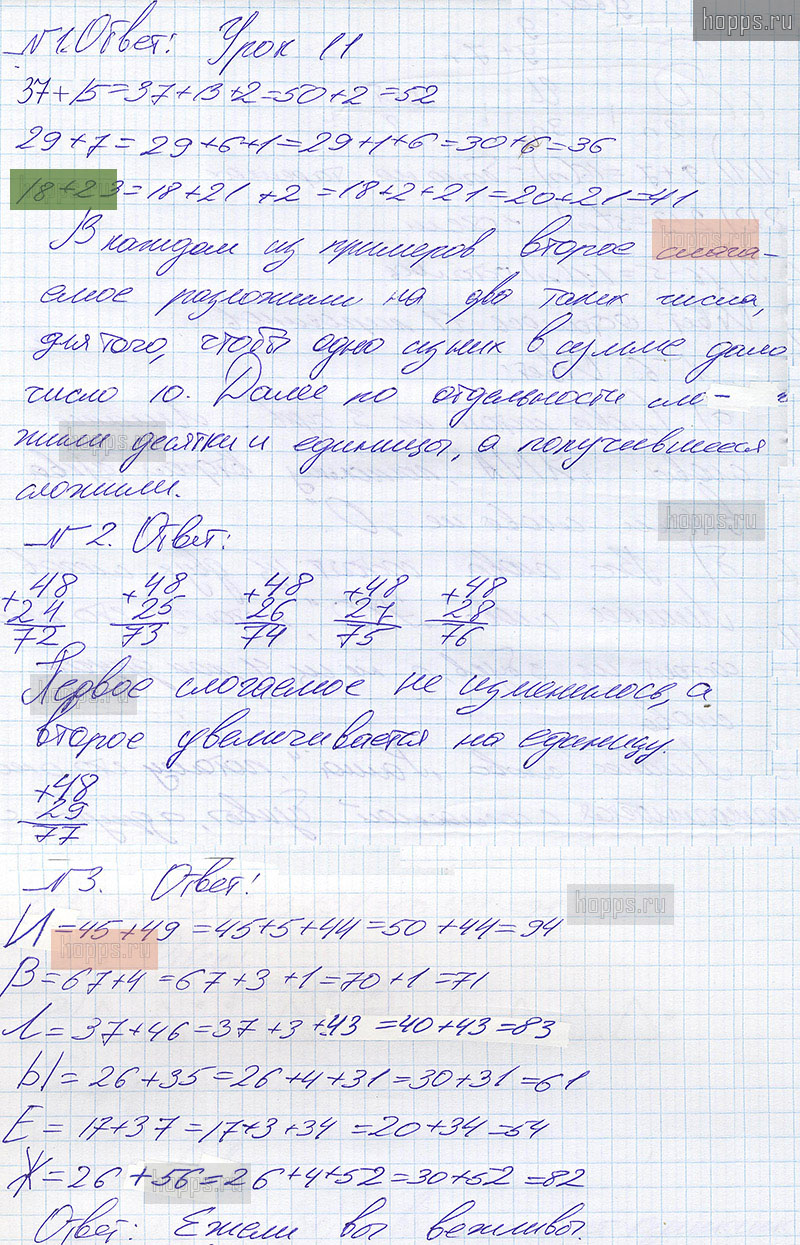 hopps.ru
№1. Ответ: Урок 11
37+15=37+13+2=50+2=52
29+7=29+6+1=29+1+6=30+6=36
18+23=18+21+2=18+2+21=20+21=41
В каждом из примеров второе слага-
емое разложили на два таких числа,
для того, чтобы одно из них в сумме дало
число 10. Далее по отдельности сло-
жили десятки и единицы, а получившееся
сложили.
hopps.ru
№2. Ответ:
+48 +48 +48 +48 +48
24 25 26 27 28
72 73 74 75 76
Первое слогаемое не изменилось, а
второе увеличивается на единицу.
+48
29
77
№3. Ответ!
hopps.ru
И=45+49=45+5+44=50+44=94
hopps.ru
В=67+4=67+3+1=70+1=71
Л=37+46=37+3+43=40+43=83
Ы=26+35=26+4+31=30+31=61
Е=17+37=17+3+34=20+34=54
Ж=26+56=26+4+52=30+52=82
Ответ: Ежели вы вежливы.